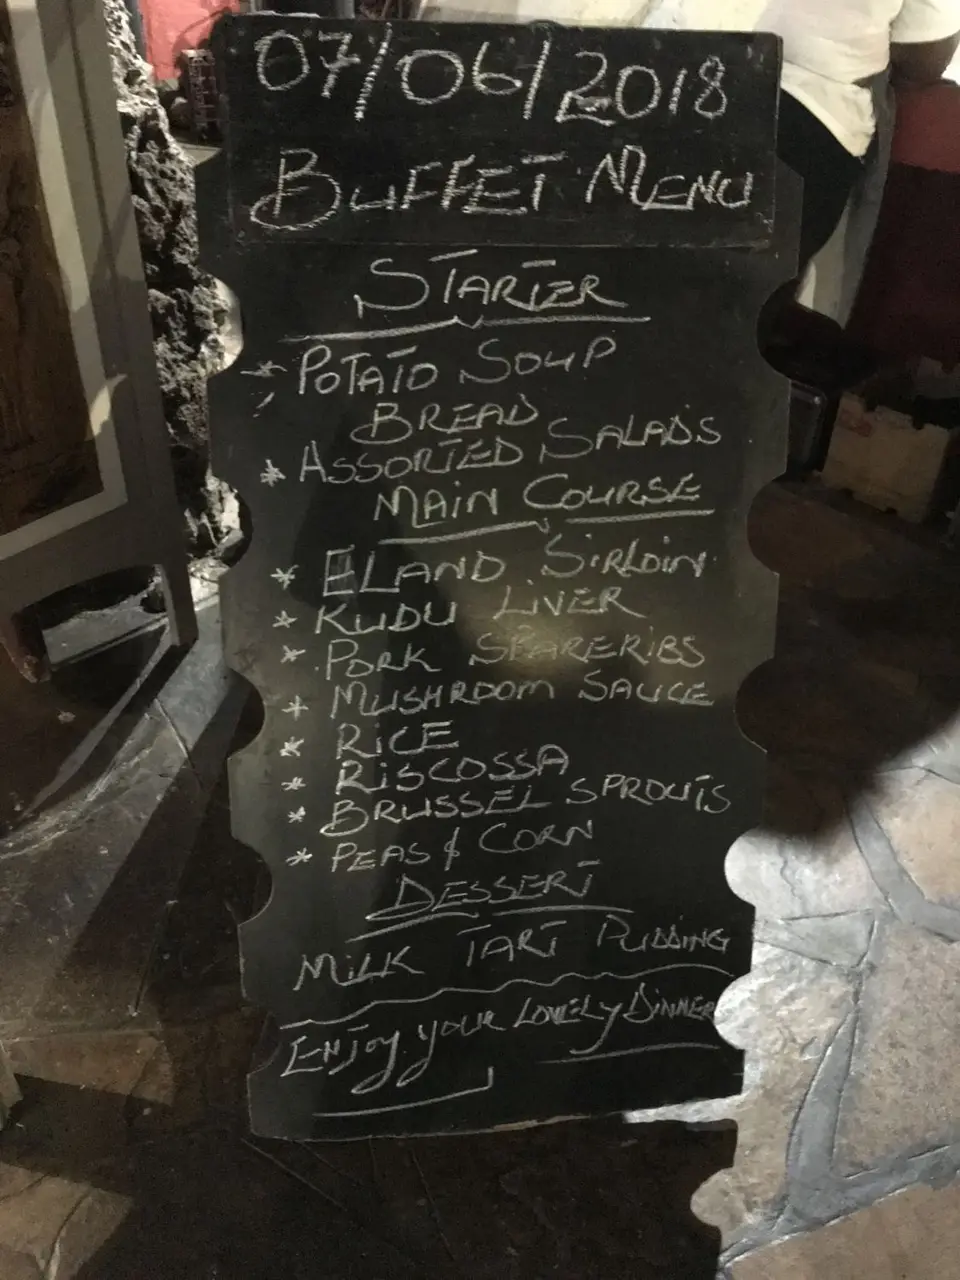 07/06/2018
BUFFET MENU
STARTER
* POTATO SOUP
BREAD
* ASSORTED SALADS
MAIN COURSE
* ELAND SIRLOIN
* KUDU LIVER
* PORK SPARERIBS
* MUSHROOM SAUCE
* RICE
* RISCOSSA
* BRUSSEL SPROUTS
* PEAS & CORN
DESSERT
MILK TART PUDDING
ENJOY YOUR LOVELY DINNER